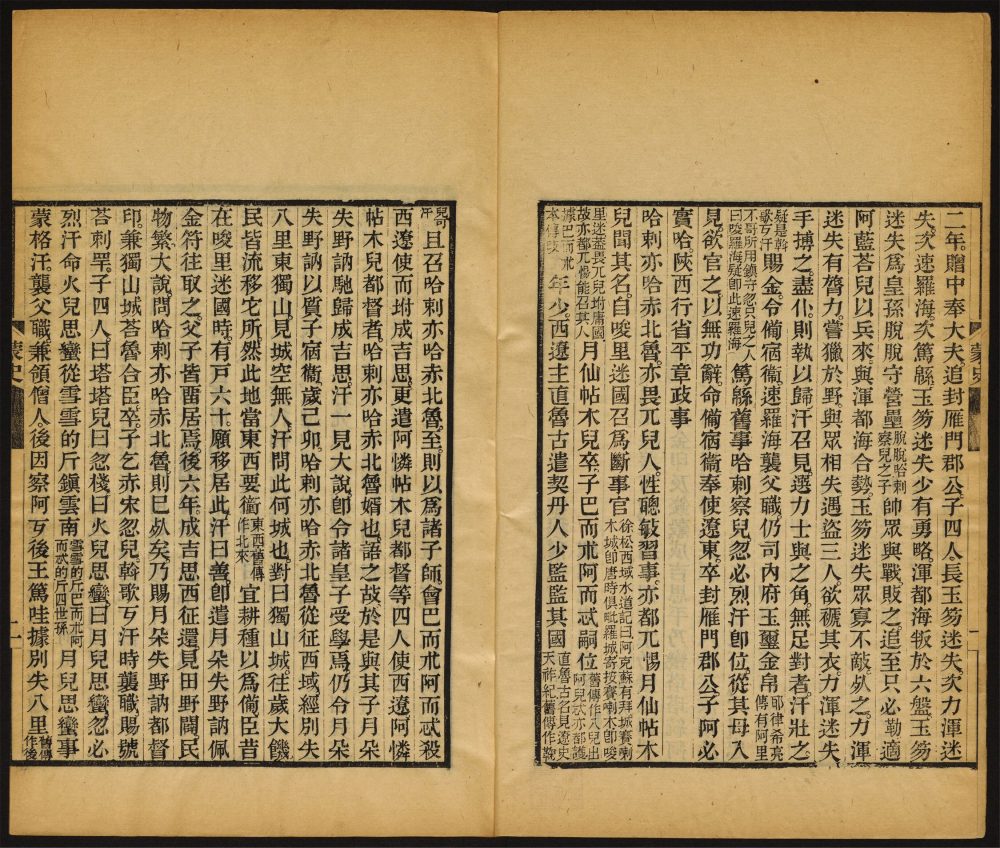 二年。贈中奉大夫追封雁門郡公。子四人長玉笏迷失次力渾迷
失次速羅海次篤緜玉笏迷失少有勇略渾都海叛於六盤玉笏
迷失為皇孫脫脫守營壘脫脫哈剌察兒之子帥眾與戰敗之追至只必勒適
阿藍荅兒以兵來與渾都海合勢玉笏迷失眾寡不敵死之力渾
迷失有膂力嘗獵於野與眾相失遇盜三人欲褫其衣力渾迷失
手搏之盡仆則執以歸汗召見選力士與之角無足對者汗壯之
疑是斡歌歹汗賜金令備宿衞速羅海襲父職仍司內府玉璽金帛耶律希亮傳有阿里
不哥所用鎮守忽只兒之人曰唆羅海疑卽此速羅海篤緜舊事哈剌察兒忽必烈汗卽位從其母入
見欲官之以無功辭命備宿衞奉使遼東卒封雁門郡公子阿必
實哈陝西行省平章政事
哈剌亦哈赤北魯亦畏兀兒人性聰敏習事亦都兀惕月仙帖木
兒聞其名自唆里迷國召爲斷事官徐松西域水道記曰阿克蘇有拜城賽喇木城卽唐時俱毗羅城寄按賽喇木卽唆
里迷蓋畏兀兒坿庸國故亦都兀惕能召其人月仙帖木兒卒子巴而朮阿而忒嗣位舊傳作八兒出阿兒忒亦都護
據巴而朮本傳改年少西遼主直魯古遣契丹人少監監其國直魯古名見遼史天祚紀舊傳作鞠
蒙史
兒可汗且召哈剌亦哈赤北魯至則以爲諸子師會巴而朮阿而忒殺
西遼使而坿成吉思更遣阿憐帖木兒都督等四人使西遼阿憐
帖木兒都督者哈剌亦哈赤北魯婿也語之故於是與其子月朵
失野訥馳歸成吉思汗一見大說卽令諸皇子受學焉仍令月朵
失野訥以質子宿衞歲己卯哈剌亦哈赤北魯從征西域經別失
八里東獨山見城空無人汗問此何城也對曰獨山城往歲大饑
民皆流移它所然此地當東西要衝東西舊傳作北來宜耕種以爲備臣昔
在唆里迷國時有戶六十願移居此汗曰善卽遣月朵失野訥佩
金符往取之父子皆畱居焉後六年成吉思西征還見田野闢民
物繁大說問哈剌亦哈赤北魯則已死矣乃賜月朵失野訥都督
印兼獨山城荅魯合臣卒子乞赤宋忽兒斡歌歹汗時襲職賜號
荅剌罕子四人曰塔塔兒曰忽棧曰火兒思蠻曰月兒思蠻忽必
烈汗命火兒思蠻從雪雪的斤鎭雲南雪雪的斤巴而朮阿而忒的斤四世孫月兒思蠻事
蒙格汗襲父職兼領僧人後因察阿歹後王篤哇據別失八里舊傳作後
蒙史